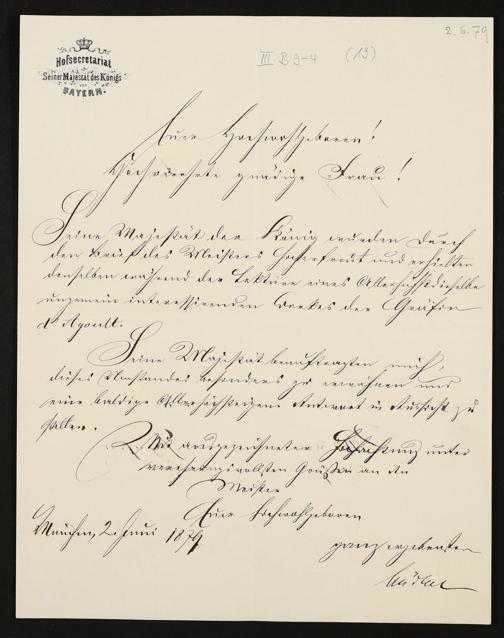 2.6.79
III B 9-4 (19)
Hofsecretariat
Seiner Majestät des Königs
von
BAYERN.
Euer Hochwohlgeboren!
Hochverehrte gnädige Frau!
Seine Majestät der König wurden durch
den Brief des Meisters hocherfreut und erhielten
denselben während der Lektüre eines Allerhöchstdieselbe
ungemein interessirenden Werkes der Gräfin
d'Agoult.
Seine Majestät beauftragten mich,
dieses Umstandes besonders zu erwähnen und
eine baldige Allerhöchsteigene Antwort in Aussicht zu
stellen.
Mit ausgezeichneter Hochachtung unter
verehrungsvollsten Grüßen an den
Meister
Euer Hochwohlgeboren
München, 2. Juni 1879
ganz ergebenster